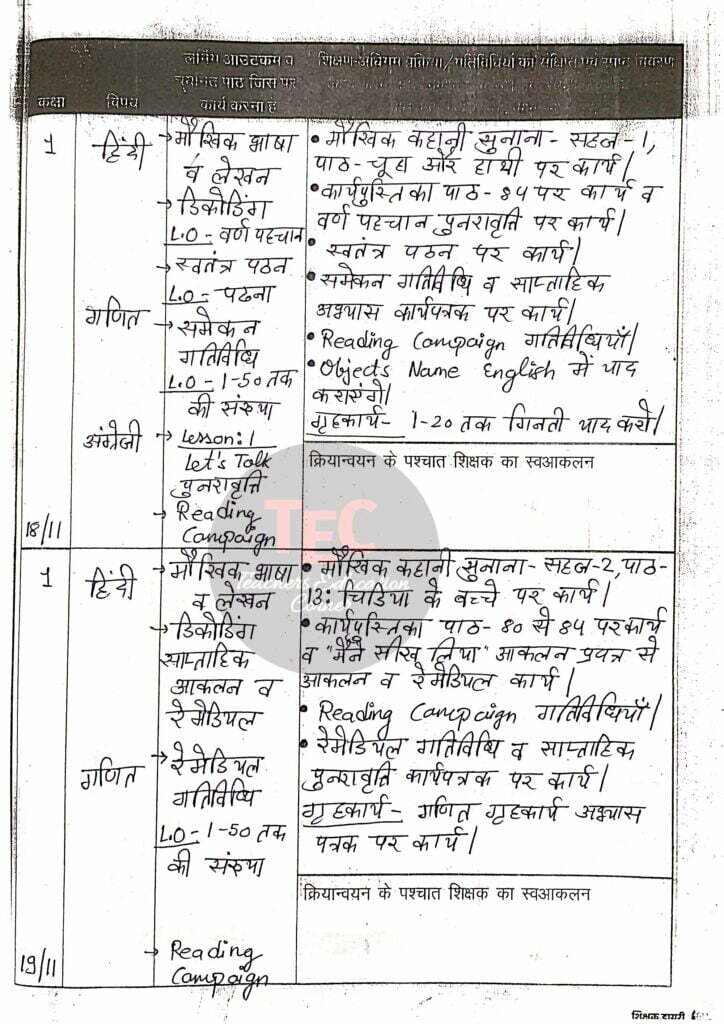 लर्निंग आउटकम व
चयनित पाठ जिस पर
कार्य करना है
शिक्षण-अधिगम प्रक्रिया/गतिविधियों का संक्षिप्त एवं स्पष्ट विवरण
कक्षा
विषय
1
हिंदी
→ मौखिक भाषा
व लेखन
→ डिकोडिंग
L.O - वर्ण पहचान
→ स्वतंत्र पठन
L.O - पढना
गणित
→ समेकन
गतिविधि
L.O - 1-50 तक
की संख्या
अंग्रेजी
→ Lesson: 1
Let's Talk
पुनरावृत्ति
→ Reading
Campaign
18/11
• मौखिक कहानी सुनाना- सहज-1,
पाठ- चूहा और हाथी पर कार्य।
• कार्यपुस्तिका पाठ- 84 पर कार्य व
वर्ण पहचान पुनरावृति पर कार्य।
• स्वतंत्र पठन पर कार्य।
• समेकन गतिविधि व साप्ताहिक
अभ्यास कार्यपत्रक पर कार्य।
• Reading Campaign गतिविधियाँ।
• Objects Name English में याद
कराएंगे।
गृहकार्य- 1-20 तक गिनती याद करो।
क्रियान्वयन के पश्चात शिक्षक का स्वआकलन
TEC
Teachers Education
Corner
1
हिंदी
→ मौखिक भाषा
व लेखन
→ डिकोडिंग
साप्ताहिक
आकलन व
रेमेडियल
गणित
→ रेमेडियल
गतिविधि
L.O - 1-50 तक
की संख्या
→ Reading
Campaign
19/11
• मौखिक कहानी सुनाना- सहज-2, पाठ-
13: चिडिया के बच्चे पर कार्य।
• कार्यपुस्तिका पाठ- 80 से 84 पर कार्य
व "मैंने सीख लिया" आकलन प्रपत्र से
आकलन व रेमेडियल कार्य।
• Reading Campaign गतिविधियाँ।
• रेमेडियल गतिविधि व साप्ताहिक
पुनरावृति कार्यपत्रक पर कार्य।
गृहकार्य- गणित गृहकार्य अभ्यास
पत्रक पर कार्य।
क्रियान्वयन के पश्चात शिक्षक का स्वआकलन
शिक्षक डायरी